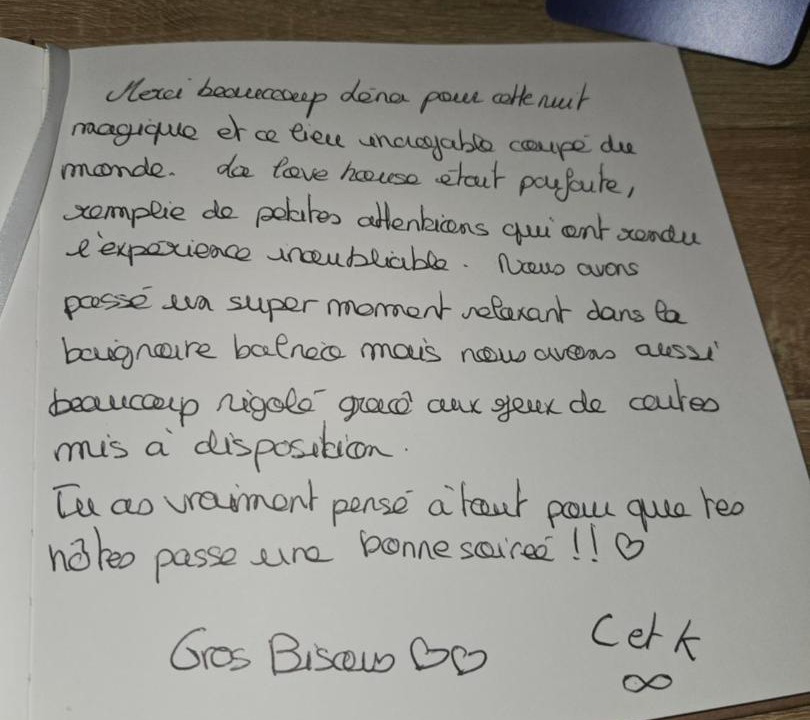 Merci beaucoup Léna pour cette nuit
magique et ce lieu incroyable coupé du
monde. La love house était parfaite,
remplie de petites attentions qui ont rendu
l'expérience inoubliable. Nous avons
passé un super moment relaxant dans la
baignoire balnéo mais nous avons aussi
beaucoup rigolé grace aux jeux de cartes
mis à disposition.
Tu as vraiment pensé à tout pour que tes
hôtes passe une bonne soireé !! ♡
Gros Bisous ♡♡
C et K
∞